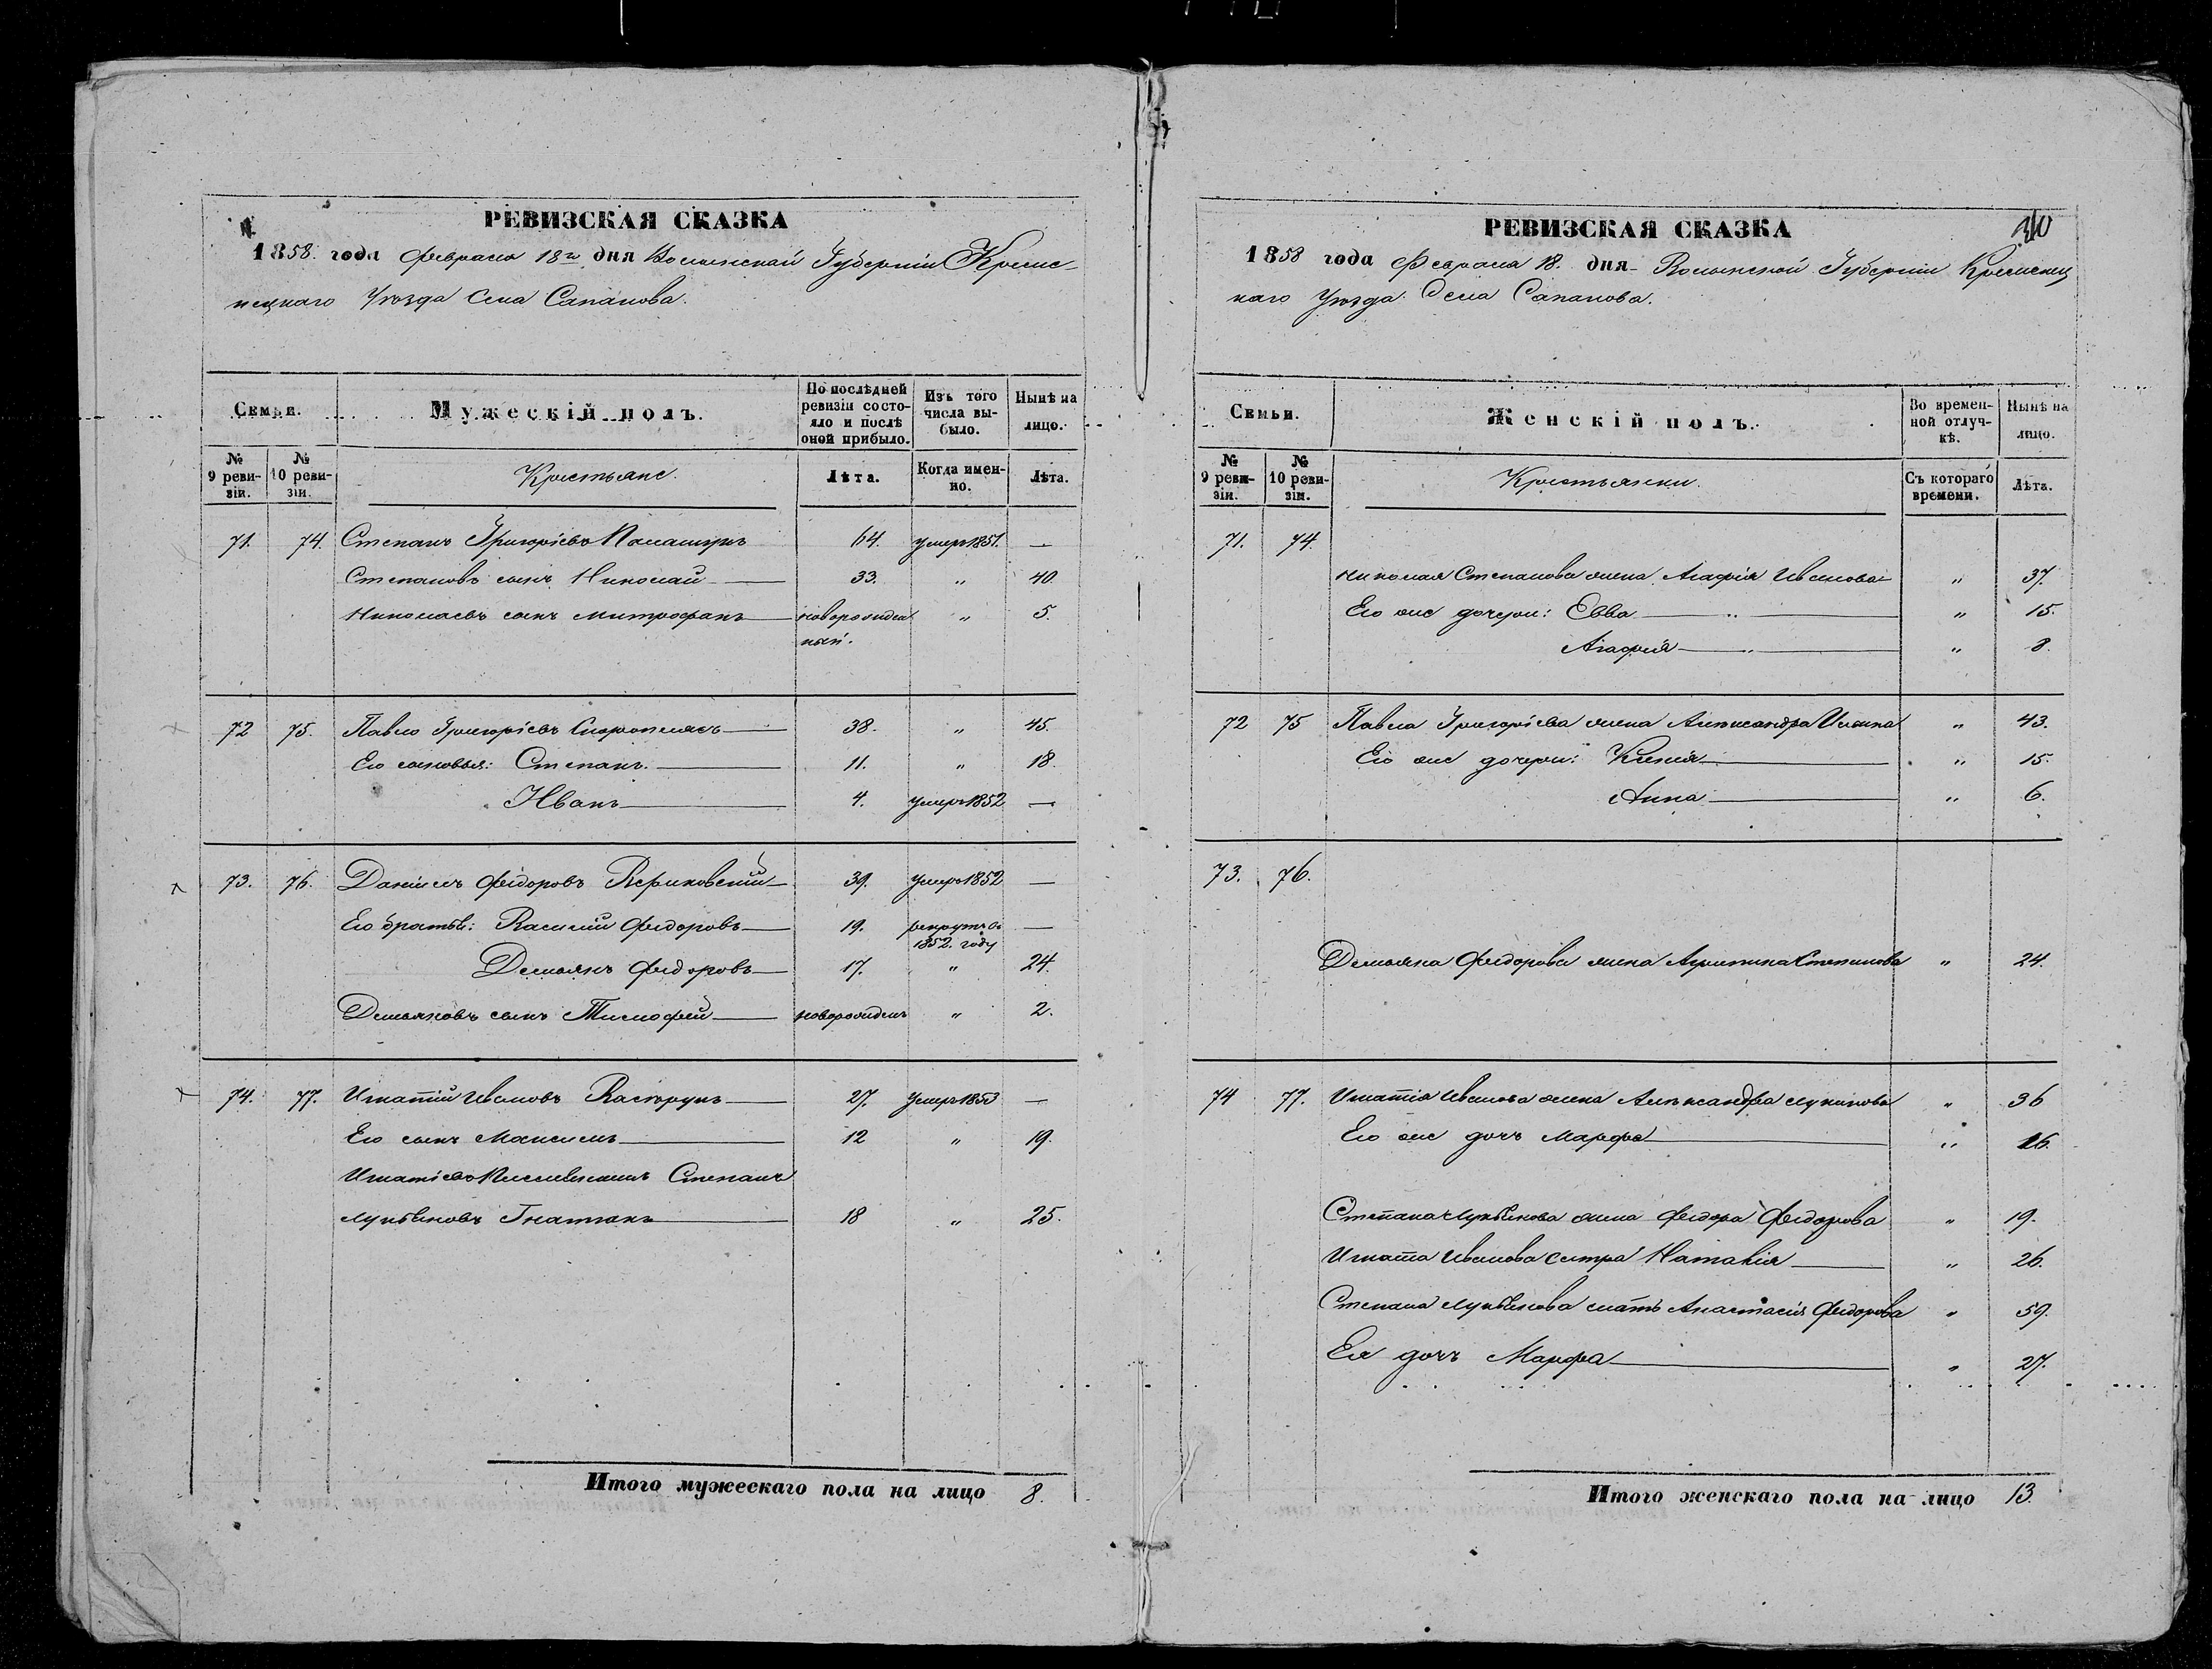 РЕВИЗСКАЯ СКАЗКА
1858 года Февраля 18го дня Волынской Губерніи Креме-
нецкаго Уѣзда Села Сапанова.
Семьи.
Мужескій полъ.
По послѣдней ревизіи состояло и послѣ оной прибыло.
Изъ того числа выбыло.
Нынѣ на лицо.
№ 9 ревизіи.
№ 10 ревизіи.
Крестьяне.
Лѣта.
Когда именно.
Лѣта.
71. 74. Степанъ Григорієвъ 64. умеръ 1851. —
Степановъ сынъ Николай 33. " 40.
Николаевъ сынъ Митрофанъ новорожден " 5.
ный.
72 75. Павло Григорієвъ 38. " 45.
Его сыновья: Степанъ. 11. " 18.
Иванъ 4. умеръ 1852 —
73. 76. Даніилъ Федоровъ 39. умеръ 1852 —
Его братья: Василий Федоровъ 19. рекрутъ въ —
1852. году
Демьянъ Федоровъ 17. " 24.
Демьяновъ сынъ Тимофей новорожденъ " 2.
74. 77. Игнатій Ивановъ 27. умеръ 1853 —
Его сынъ Максимъ 12 " 19.
Игнатієвъ Степанъ
Лукьяновъ Гнатюкъ 18 " 25.
Итого мужескаго пола на лицо 8.
РЕВИЗСКАЯ СКАЗКА
310
1858 года Февраля 18. дня Волынской Губерніи Кременец
каго Уѣзда Села Сапанова.
Семьи.
Женскій полъ.
Во временной отлучкѣ.
Нынѣ на лицо.
№ 9 ревизіи.
№ 10 ревизіи.
Крестьянки.
Съ котораго времени.
Лѣта.
71. 74.
Николая Степанова жена Агафія Иванова " 37.
Его же дочери: Евва " 15.
Агафія " 8.
72 75 Павла Григорієва жена Александра " 43.
Его же дочери: Ксенія " 15.
Анна " 6.
73. 76.
Демьяна Федорова жена Агрипина Степанова " 24.
74 77. Игнатія Иванова жена Александра Лукинова " 36
Его же дочь Марфа " 16.
Степана Лукьянова жена Федора Федорова " 19.
Игната Иванова сестра Наталія " 26.
Степана Лукьянова мать Анастасія Федорова " 59.
Ея дочь Марфа " 27.
Итого женскаго пола на лицо 13.